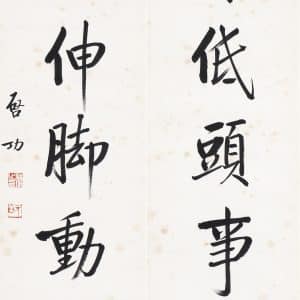 低頭事
伸脚動
啓功